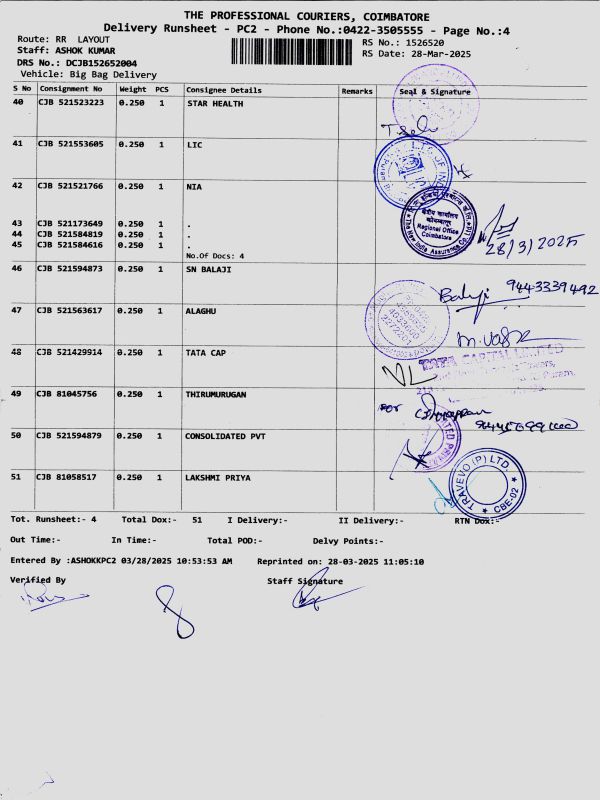 THE PROFESSIONAL COURIERS, COIMBATORE
Delivery Runsheet - PC2 - Phone No.:0422-3505555 - Page No.:4
Route: RR LAYOUT
RS No.: 1526520
Staff: ASHOK KUMAR
RS Date: 28-Mar-2025
DRS No.: DCJB152652004
Vehicle: Big Bag Delivery
S No Consignment No Weight PCS Consignee Details Remarks Seal & Signature
40 CJB 521523223 0.250 1 STAR HEALTH
41 CJB 521553605 0.250 1 LIC
42 CJB 521521766 0.250 1 NIA
Regional Office
Coimbatore
The New India Assurance Co. Ltd.
28/3/2025
43 CJB 521173649 0.250 1 .
44 CJB 521584819 0.250 1 .
45 CJB 521584616 0.250 1 .
No.Of Docs: 4
46 CJB 521594873 0.250 1 SN BALAJI
Balaji 9443339492
47 CJB 521563617 0.250 1 ALAGHU
48 CJB 521429914 0.250 1 TATA CAP
TATA CAPITAL LIMITED
49 CJB 81045756 0.250 1 THIRUMURUGAN
For
50 CJB 521594879 0.250 1 CONSOLIDATED PVT
51 CJB 81058517 0.250 1 LAKSHMI PRIYA
TRAVEVO (P) LTD.
CBE-02
Tot. Runsheet:- 4 Total Dox:- 51 I Delivery:- II Delivery:- RTN Dox:-
Out Time:- In Time:- Total POD:- Delvy Points:-
Entered By :ASHOKKPC2 03/28/2025 10:53:53 AM Reprinted on: 28-03-2025 11:05:10
Verified By Staff Signature